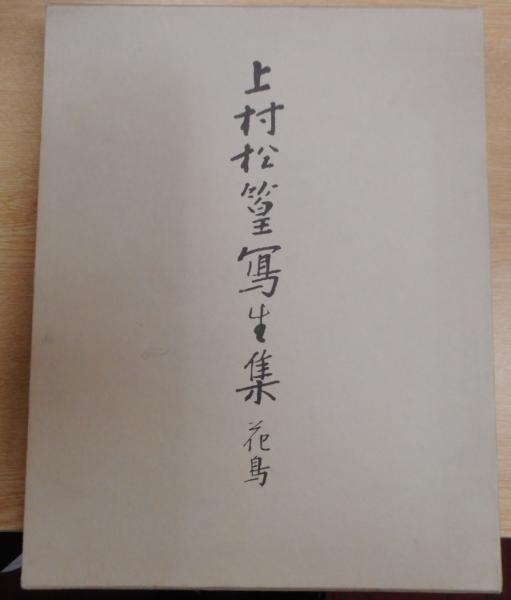 上村松篁寫生集 花鳥